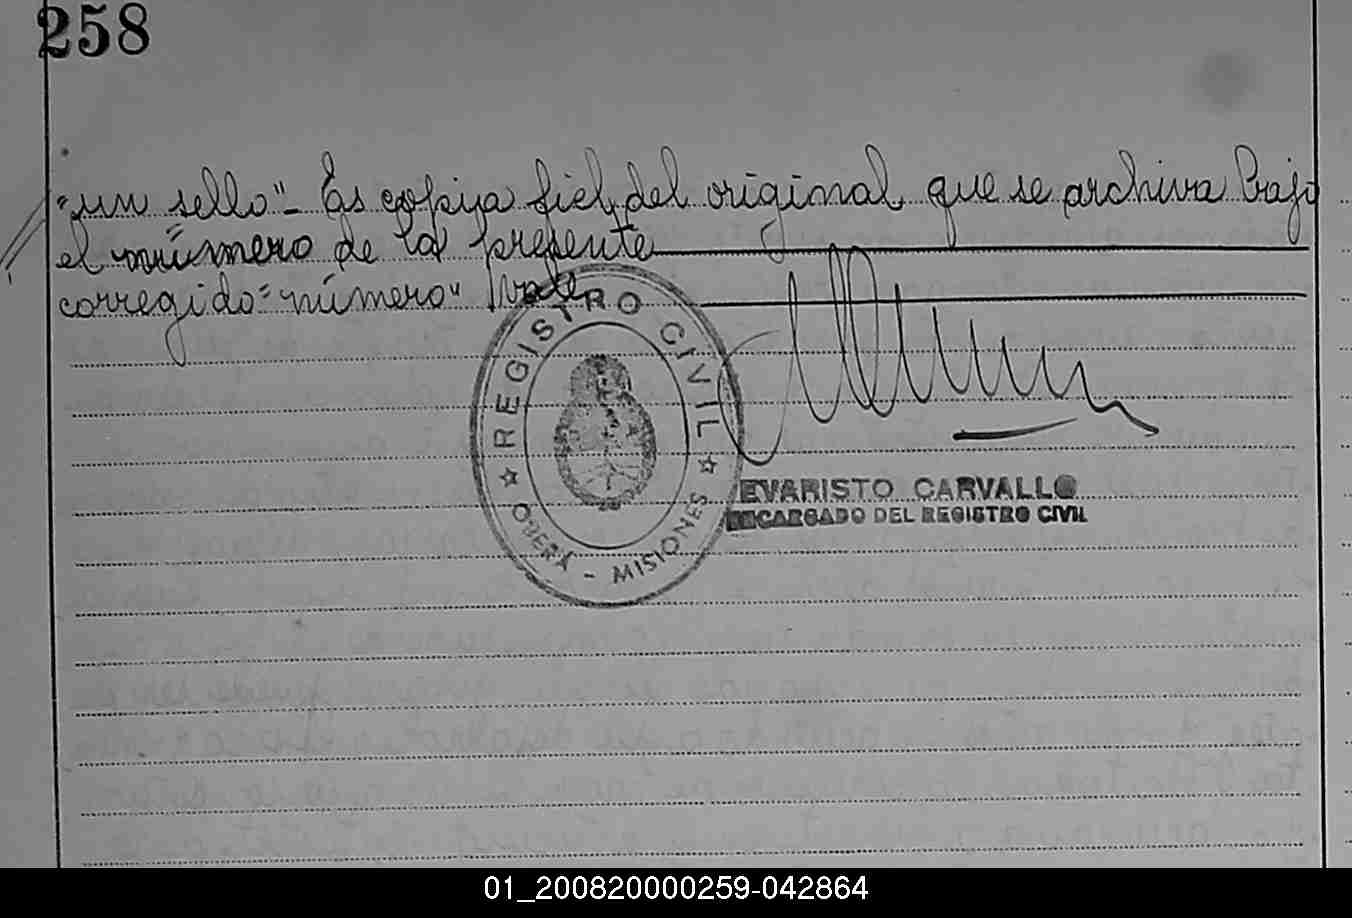 258
"un sello"- Es copia fiel del original que se archiva bajo
el número de la presente
corregido="número" Vale
REGISTRO CIVIL
OBERÁ - MISIONES
EVARISTO CARVALLO
ENCARGADO DEL REGISTRO CIVIL
01_200820000259-042864